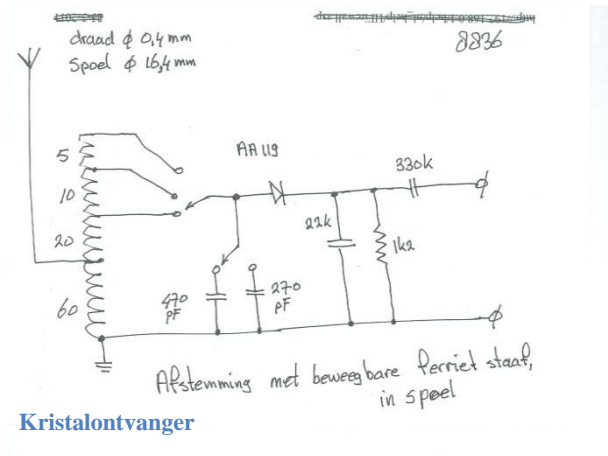 8836
draad ϕ 0,4 mm
Spoel ϕ 16,4 mm
AA 119
5
330k
10
22k
1k2
20
470
pF
270
pF
60
Afstemming met beweegbare ferriet staaf,
in spoel
Kristalontvanger